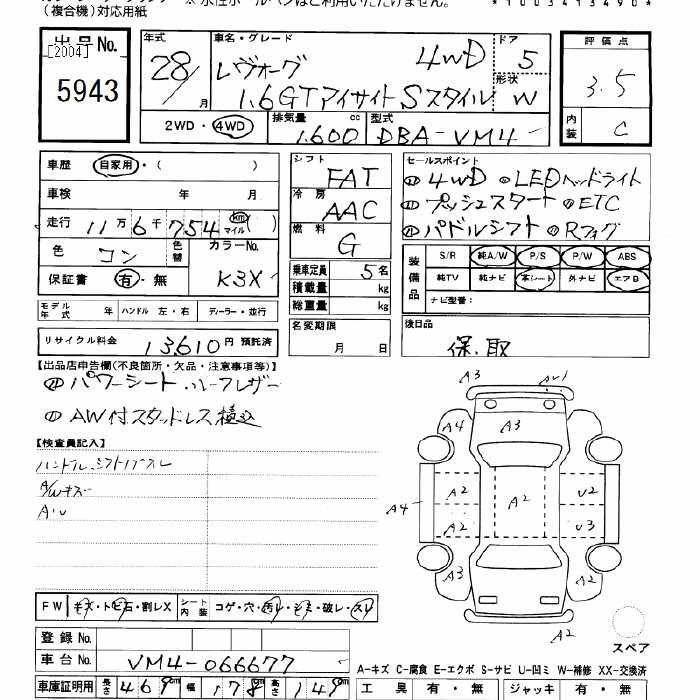 (複合機)対応用紙
出品No.
[2004]
5943
年式
28/
月
車名・グレード
レヴォーグ 4WD
1.6GTアイサイトSスタイル
ドア
5
形状
W
評価点
3.5
内装
C
2WD・4WD
排気量
cc
1.600
型式
DBA-VM4
車歴
自家用・( )
車検
年 月
走行
11万6千754
km
マイル
( )
色
コン
色替
カラーNo.
K3X
保証書
有・無
シフト
FAT
冷房
AAC
燃料
G
乗車定員
5名
積載量
kg
総重量
kg
セールスポイント
4WD LEDヘッドライト
プッシュスタート ETC
パドルシフト Rフォグ
装備品
S/R 純A/W P/S P/W ABS
純TV 純ナビ 革シート 外ナビ エアB
ナビ型番:
モデル年式 年 ハンドル 左・右 ディーラー・並行
リサイクル料金
13,610円 預託済
名変期限
月 日
後日品
保.取
【出品店申告欄(不良箇所・欠品・注意事項等)】
パワーシート ハーフレザー
AW付スタッドレス積込
【検査員記入】
ハンドル.シフトノブスレ
A/Wキズ
A・U
A3
A4
A3
A2
A2
A2
U2
A4
A2
U3
A3
A2
A2
スペア
FW キズ・トビ石・割レX
シート内装 コゲ・穴・汚レ・シミ・破レ・スレ
登録No.
車台No.
VM4-066677
車庫証明用
長さ 469cm 幅 178cm 高さ 149cm
A-キズ C-腐食 E-エクボ S-サビ U-凹ミ W-補修 XX-交換済
工具 有・無 ジャッキ 有・無